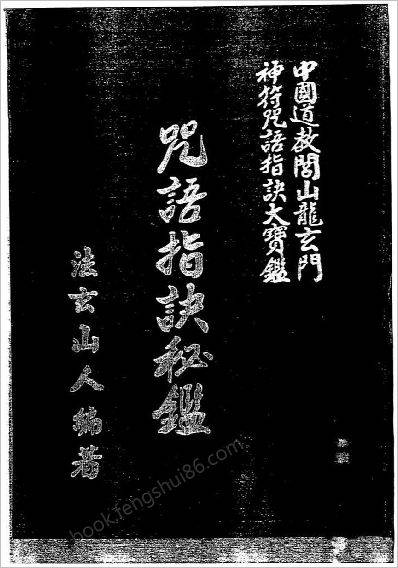 中國道教閭山龍玄門
神符咒語指訣大寶鑑
咒語指訣秘鑑
法玄山人編著
book.fengshui86.com